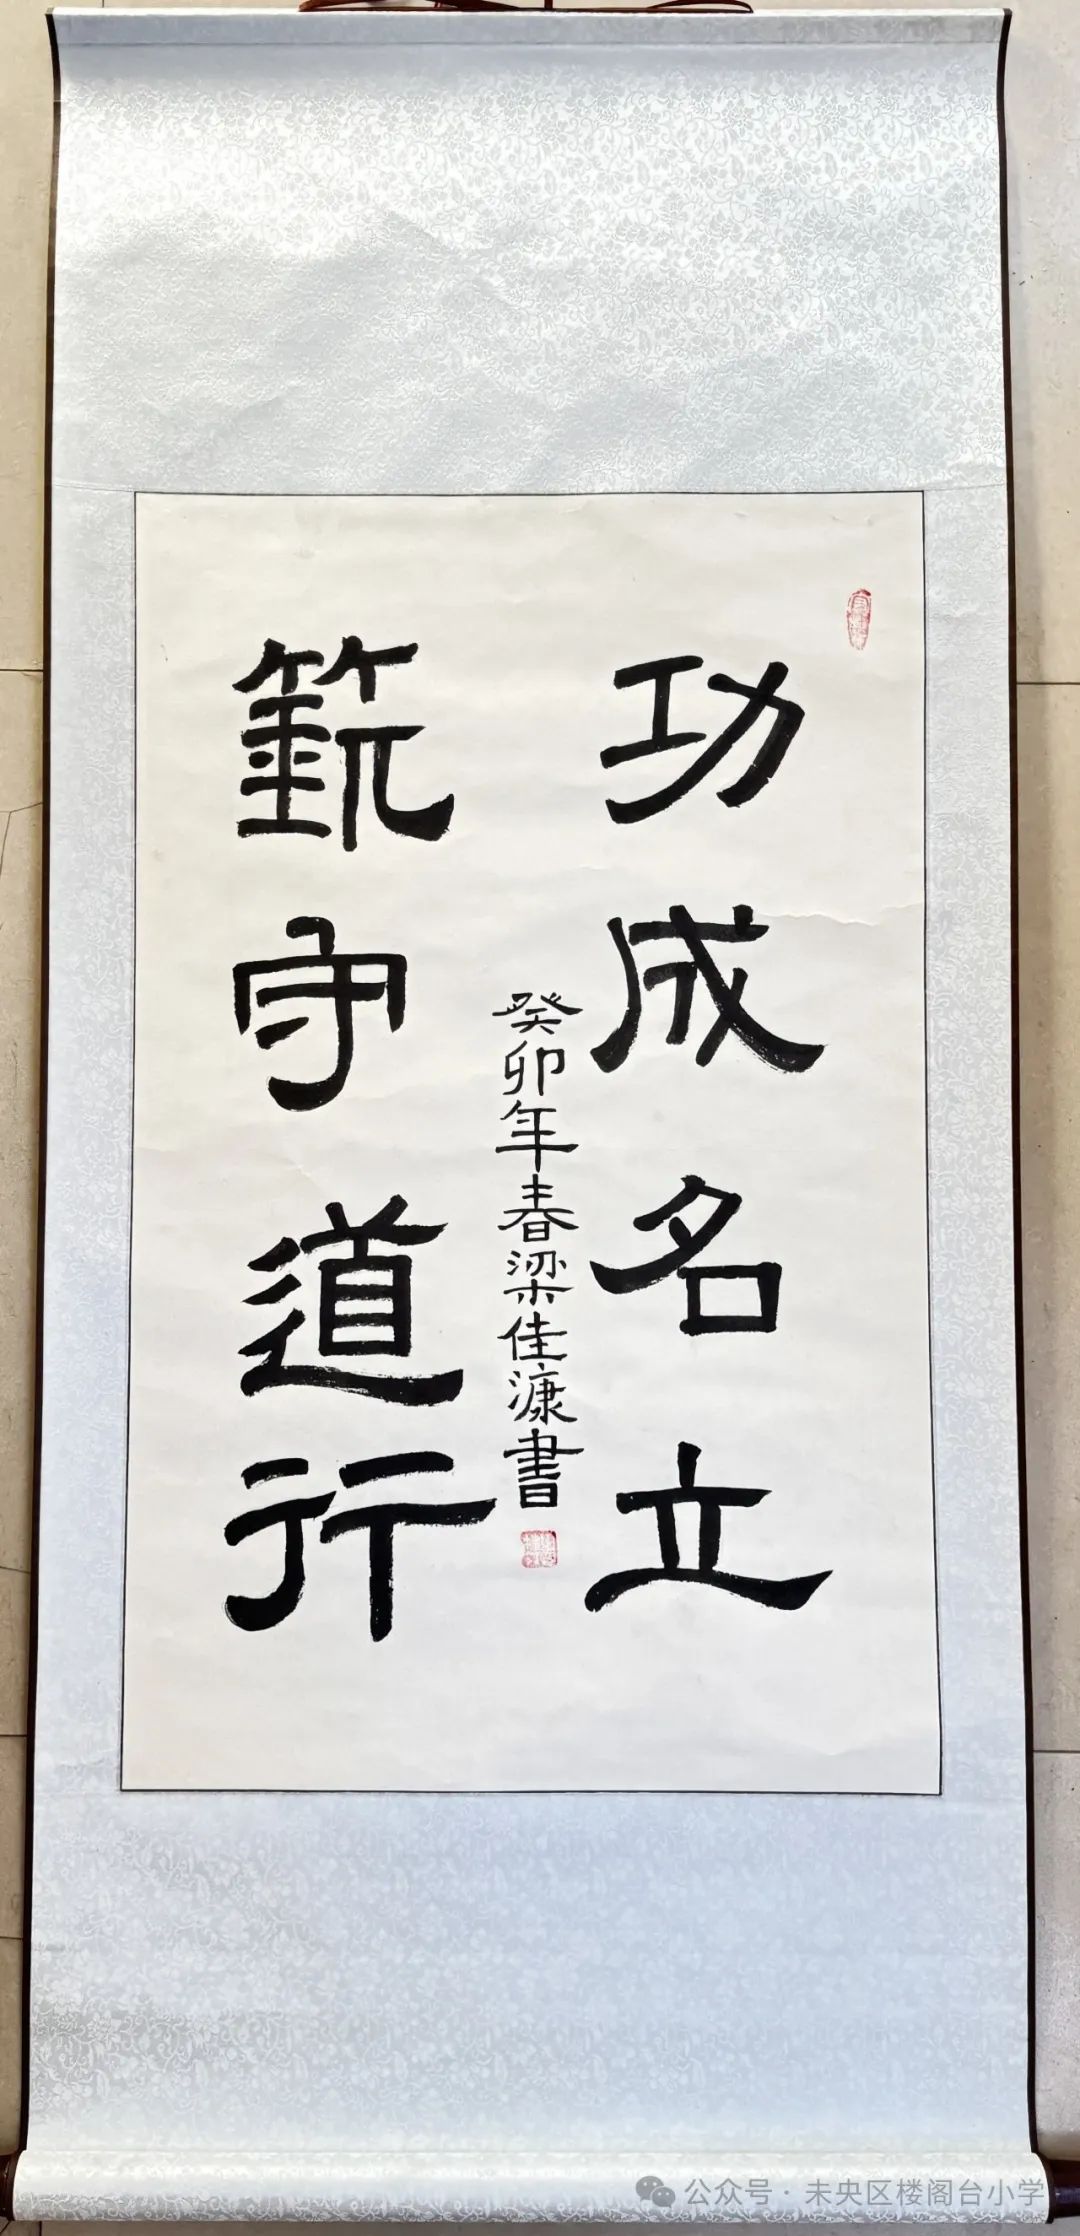 功成名立
守道行
癸卯年春梁佳漮書
公众号·未央区楼阁台小学